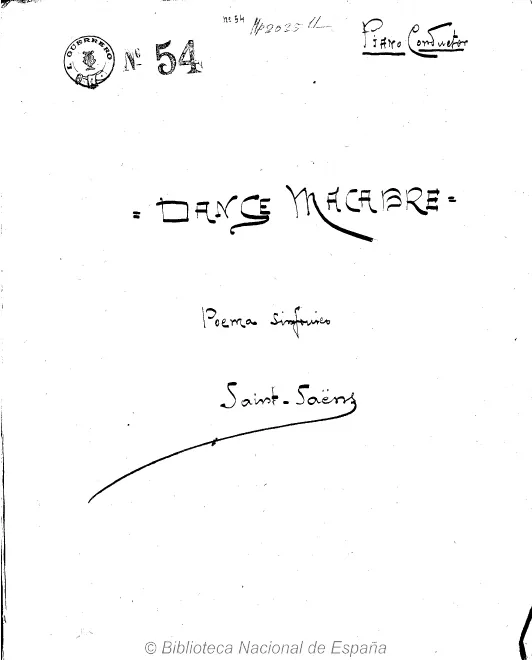 nº 54
Piano Conductor
J. GUERRERO
Nº 54
= DANCE MACABRE =
Poema sinfónico
Saint-Saëns
© Biblioteca Nacional de España